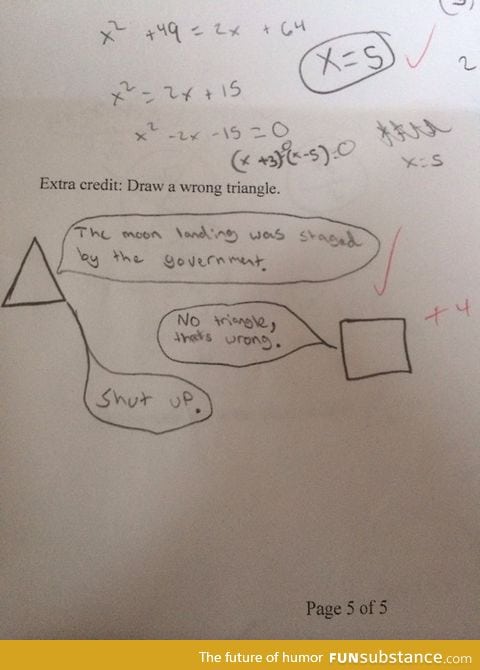 x² +49 = 2x + 64
x = 5
2
x² = 2x + 15
x² - 2x - 15 = 0
(x +3)(x-5)=0
x=5
Extra credit: Draw a wrong triangle.
The moon landing was staged
by the government.
No triangle,
thats wrong.
+4
Shut up.
Page 5 of 5
The future of humor FUNsubstance.com